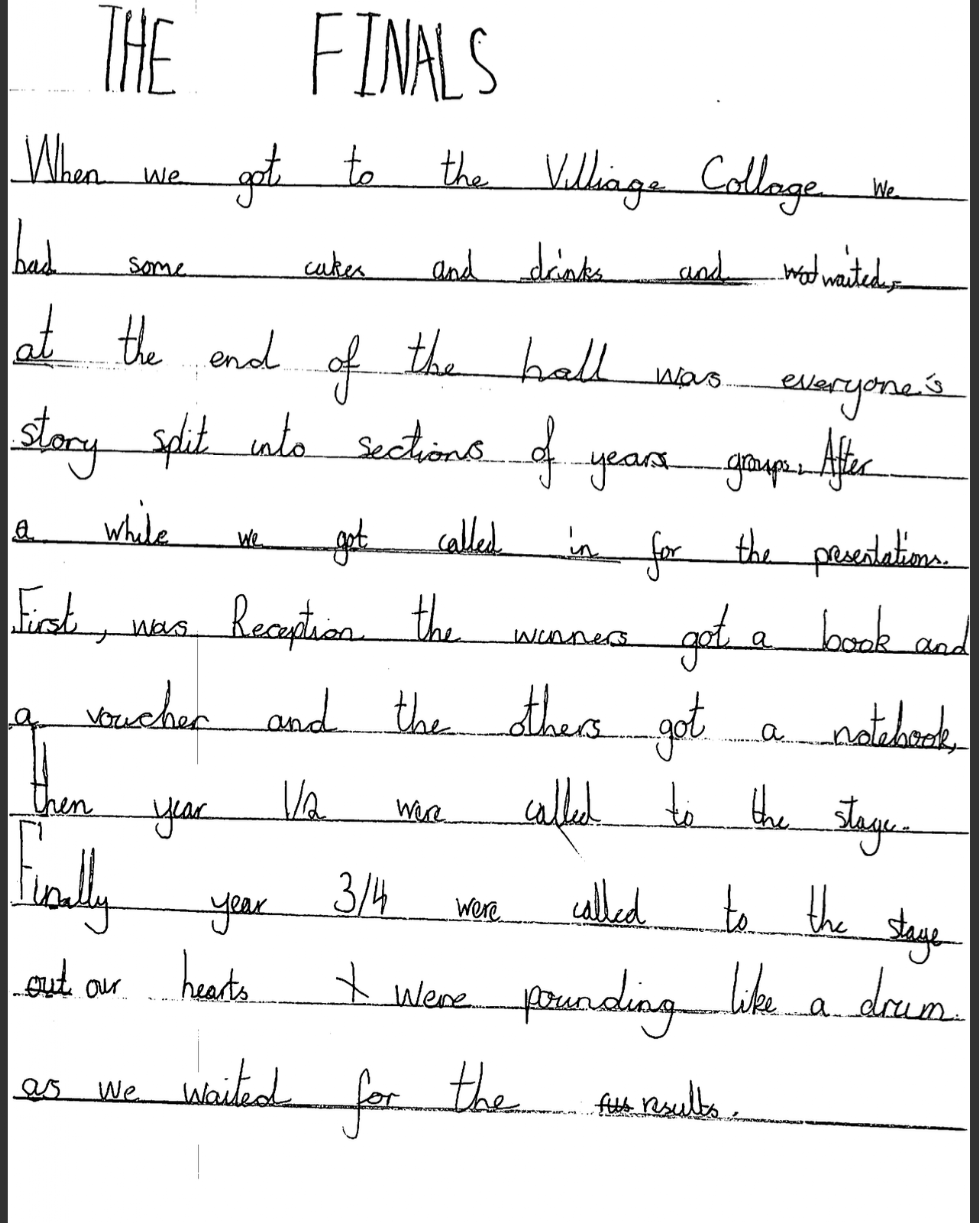 THE FINALS
When we got to the Villiage Collage we
had some cakes and drinks and waited,
at the end of the hall was everyone's
story split into sections of years groups. After
a while we got called in for the presentations.
First, was Reception the winners got a book and
a voucher and the others got a notebook,
then year 1/2 were called to the stage.
Finally year 3/4 were called to the stage
out our hearts were pounding like a drum.
as we waited for the results.